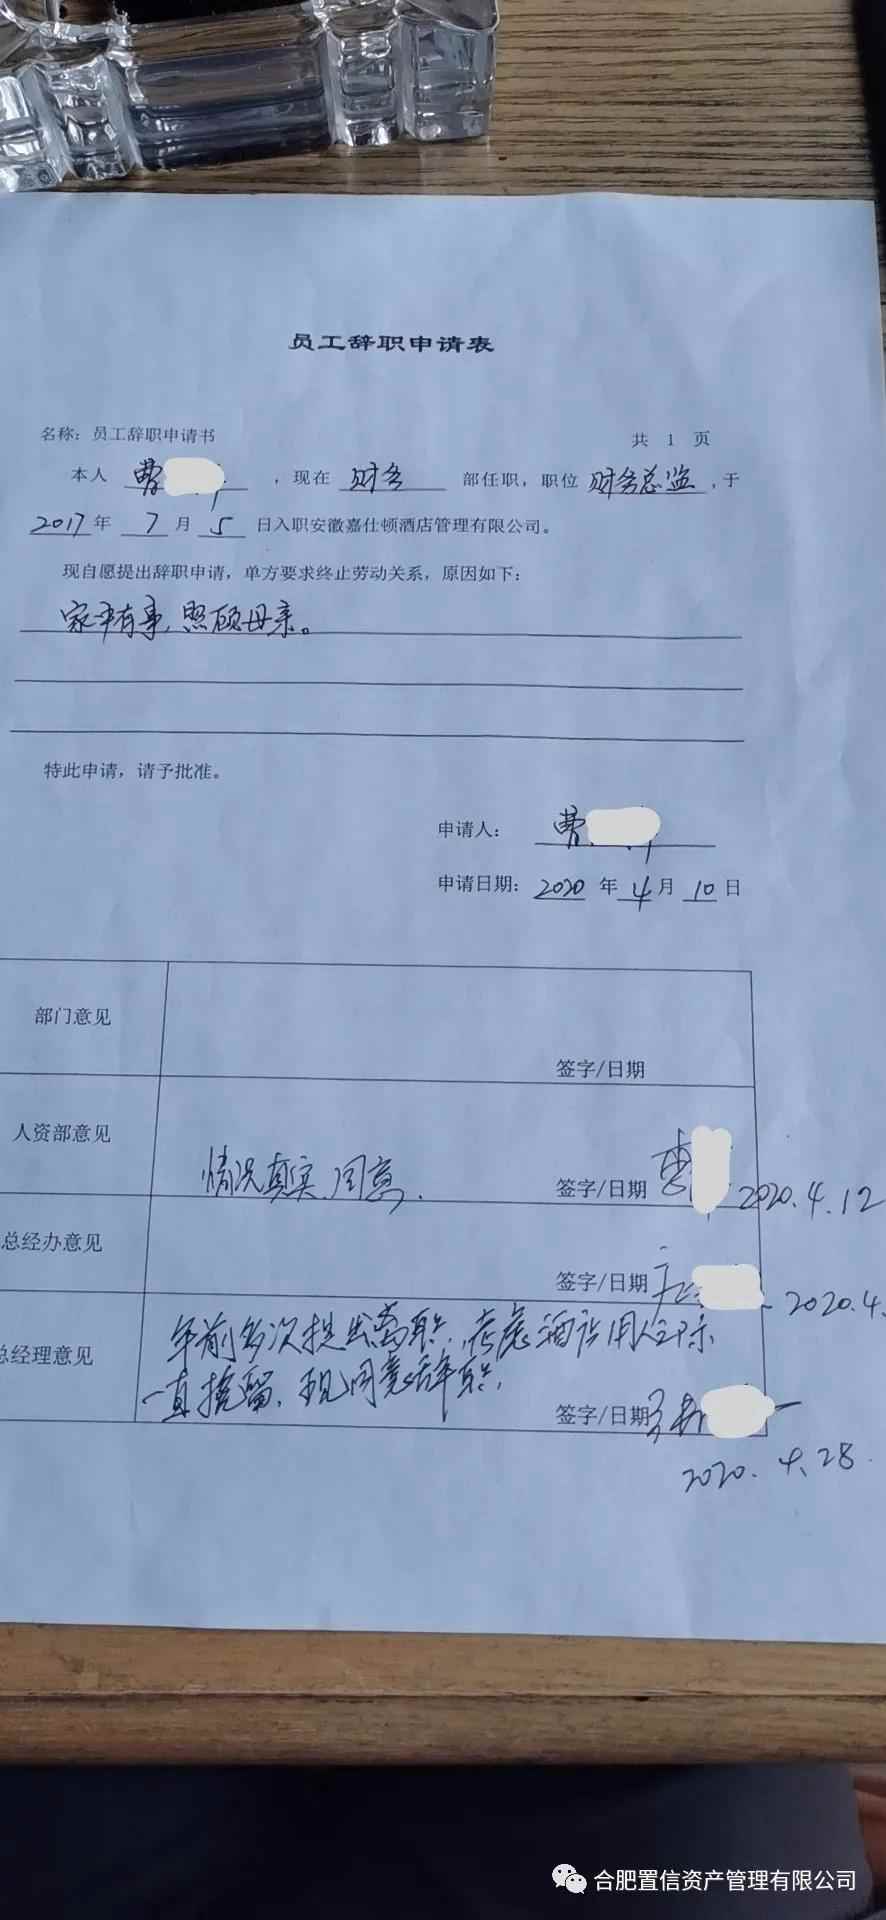 员工辞职申请表
名称：员工辞职申请书 共 1 页
本人 曹 ，现在 财务 部任职，职位 财务总监 ，于
2017 年 7 月 5 日入职安徽嘉仕顿酒店管理有限公司。
现自愿提出辞职申请，单方要求终止劳动关系，原因如下：
家中有事，照顾母亲。
特此申请，请予批准。
申请人： 曹
申请日期： 2020 年 4 月 10 日
部门意见
签字/日期
人资部意见
情况真实，同意.
签字/日期 2020.4.12
总经办意见
签字/日期 2020.4.
总经理意见
年前多次提出离职，考虑酒店用人之际
一直挽留，现同意辞职，
签字/日期
2020.4.28.
合肥置信资产管理有限公司